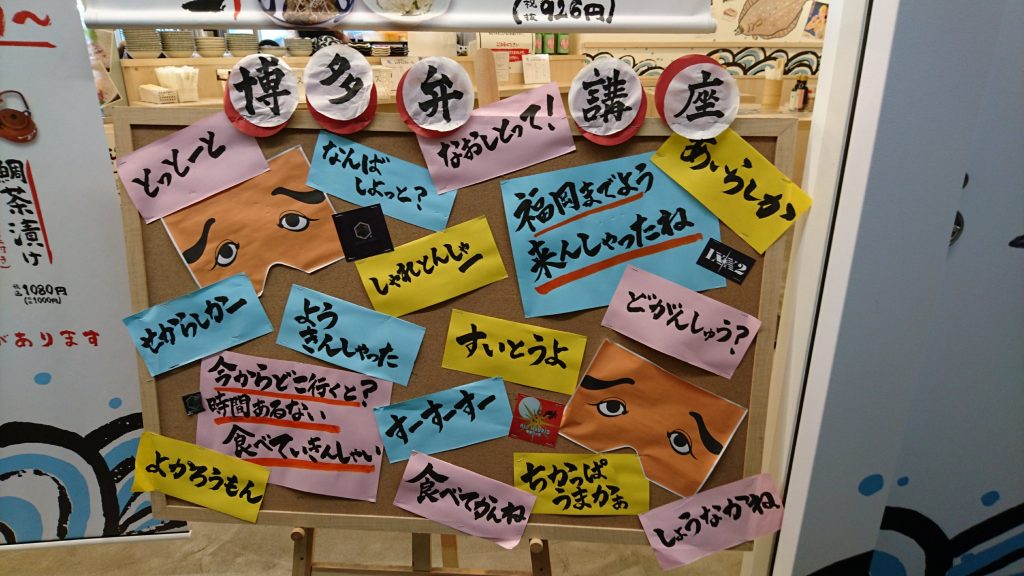 (税抜926円)
博多弁講座
とっとーと
なんば
しよっと?
なおしとって!
あいらしか
福岡までよう
来んしゃったね
しゃれとんしゃー
どがんしゅう?
せからしかー
よう
きんしゃった
すいとうよ
今からどこ行くと?
時間あるない
食べていきんしゃい
すーすーすー
よかろうもん
食べてかんね
ちかっぱ
うまかぁ
しょうなかね
鯛茶漬け
1080円
(税抜1000円)
があります